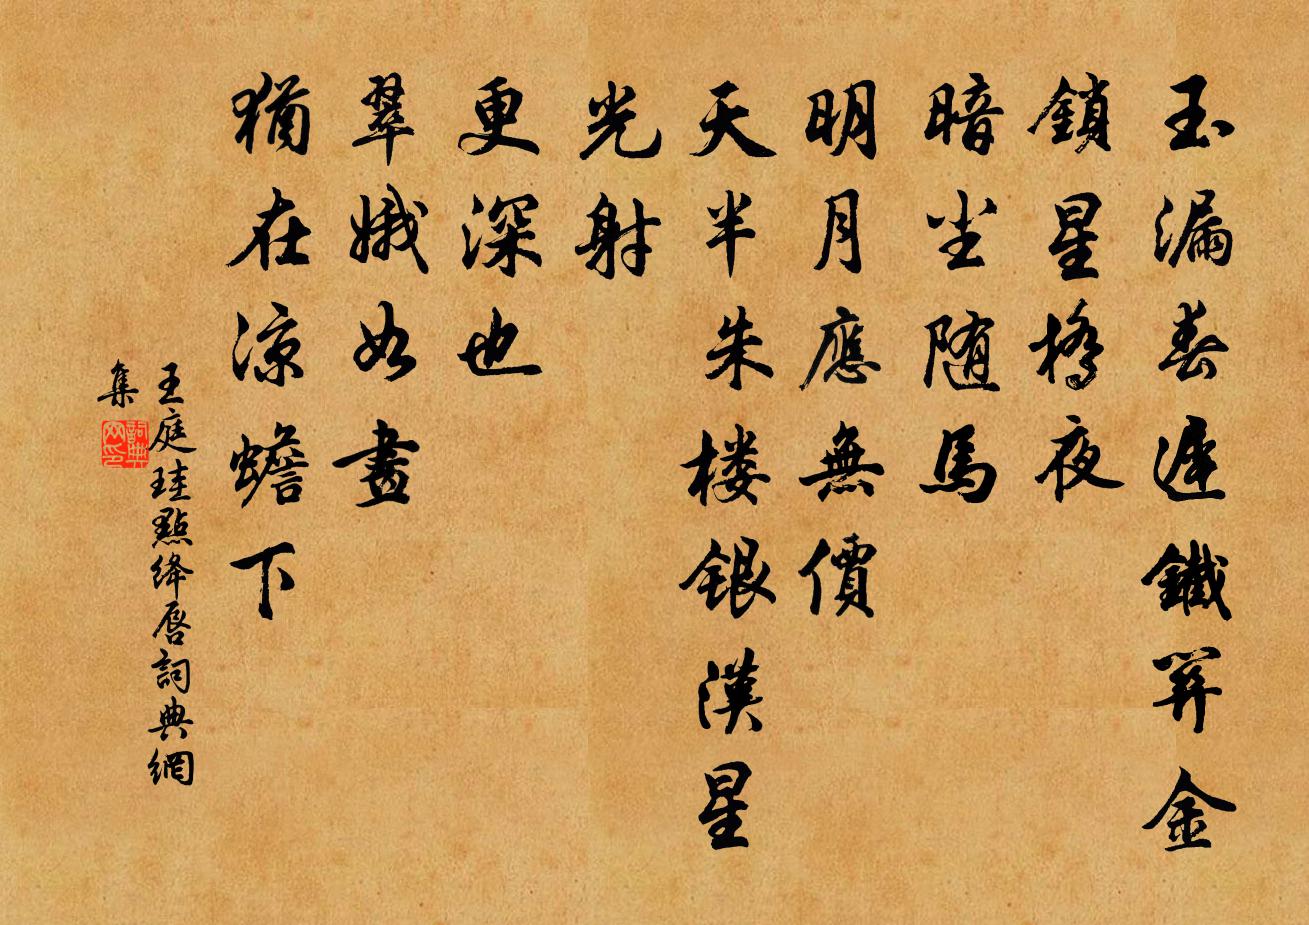 玉漏春遲鐵關金
鎖星橋夜
暗尘随馬
明月應無價
天半朱楼銀漢星
光射
更深也
翠娥如畫
猶在凉蟾下
王庭珪點絳唇詞典網
集
詞典
网印